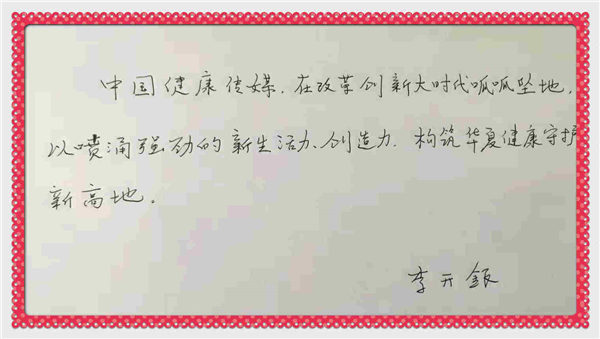 中国健康传媒,在改革创新大时代呱呱坠地,
以喷涌强劲的新生活力、创造力,构筑华夏健康守护
新高地。
李开银